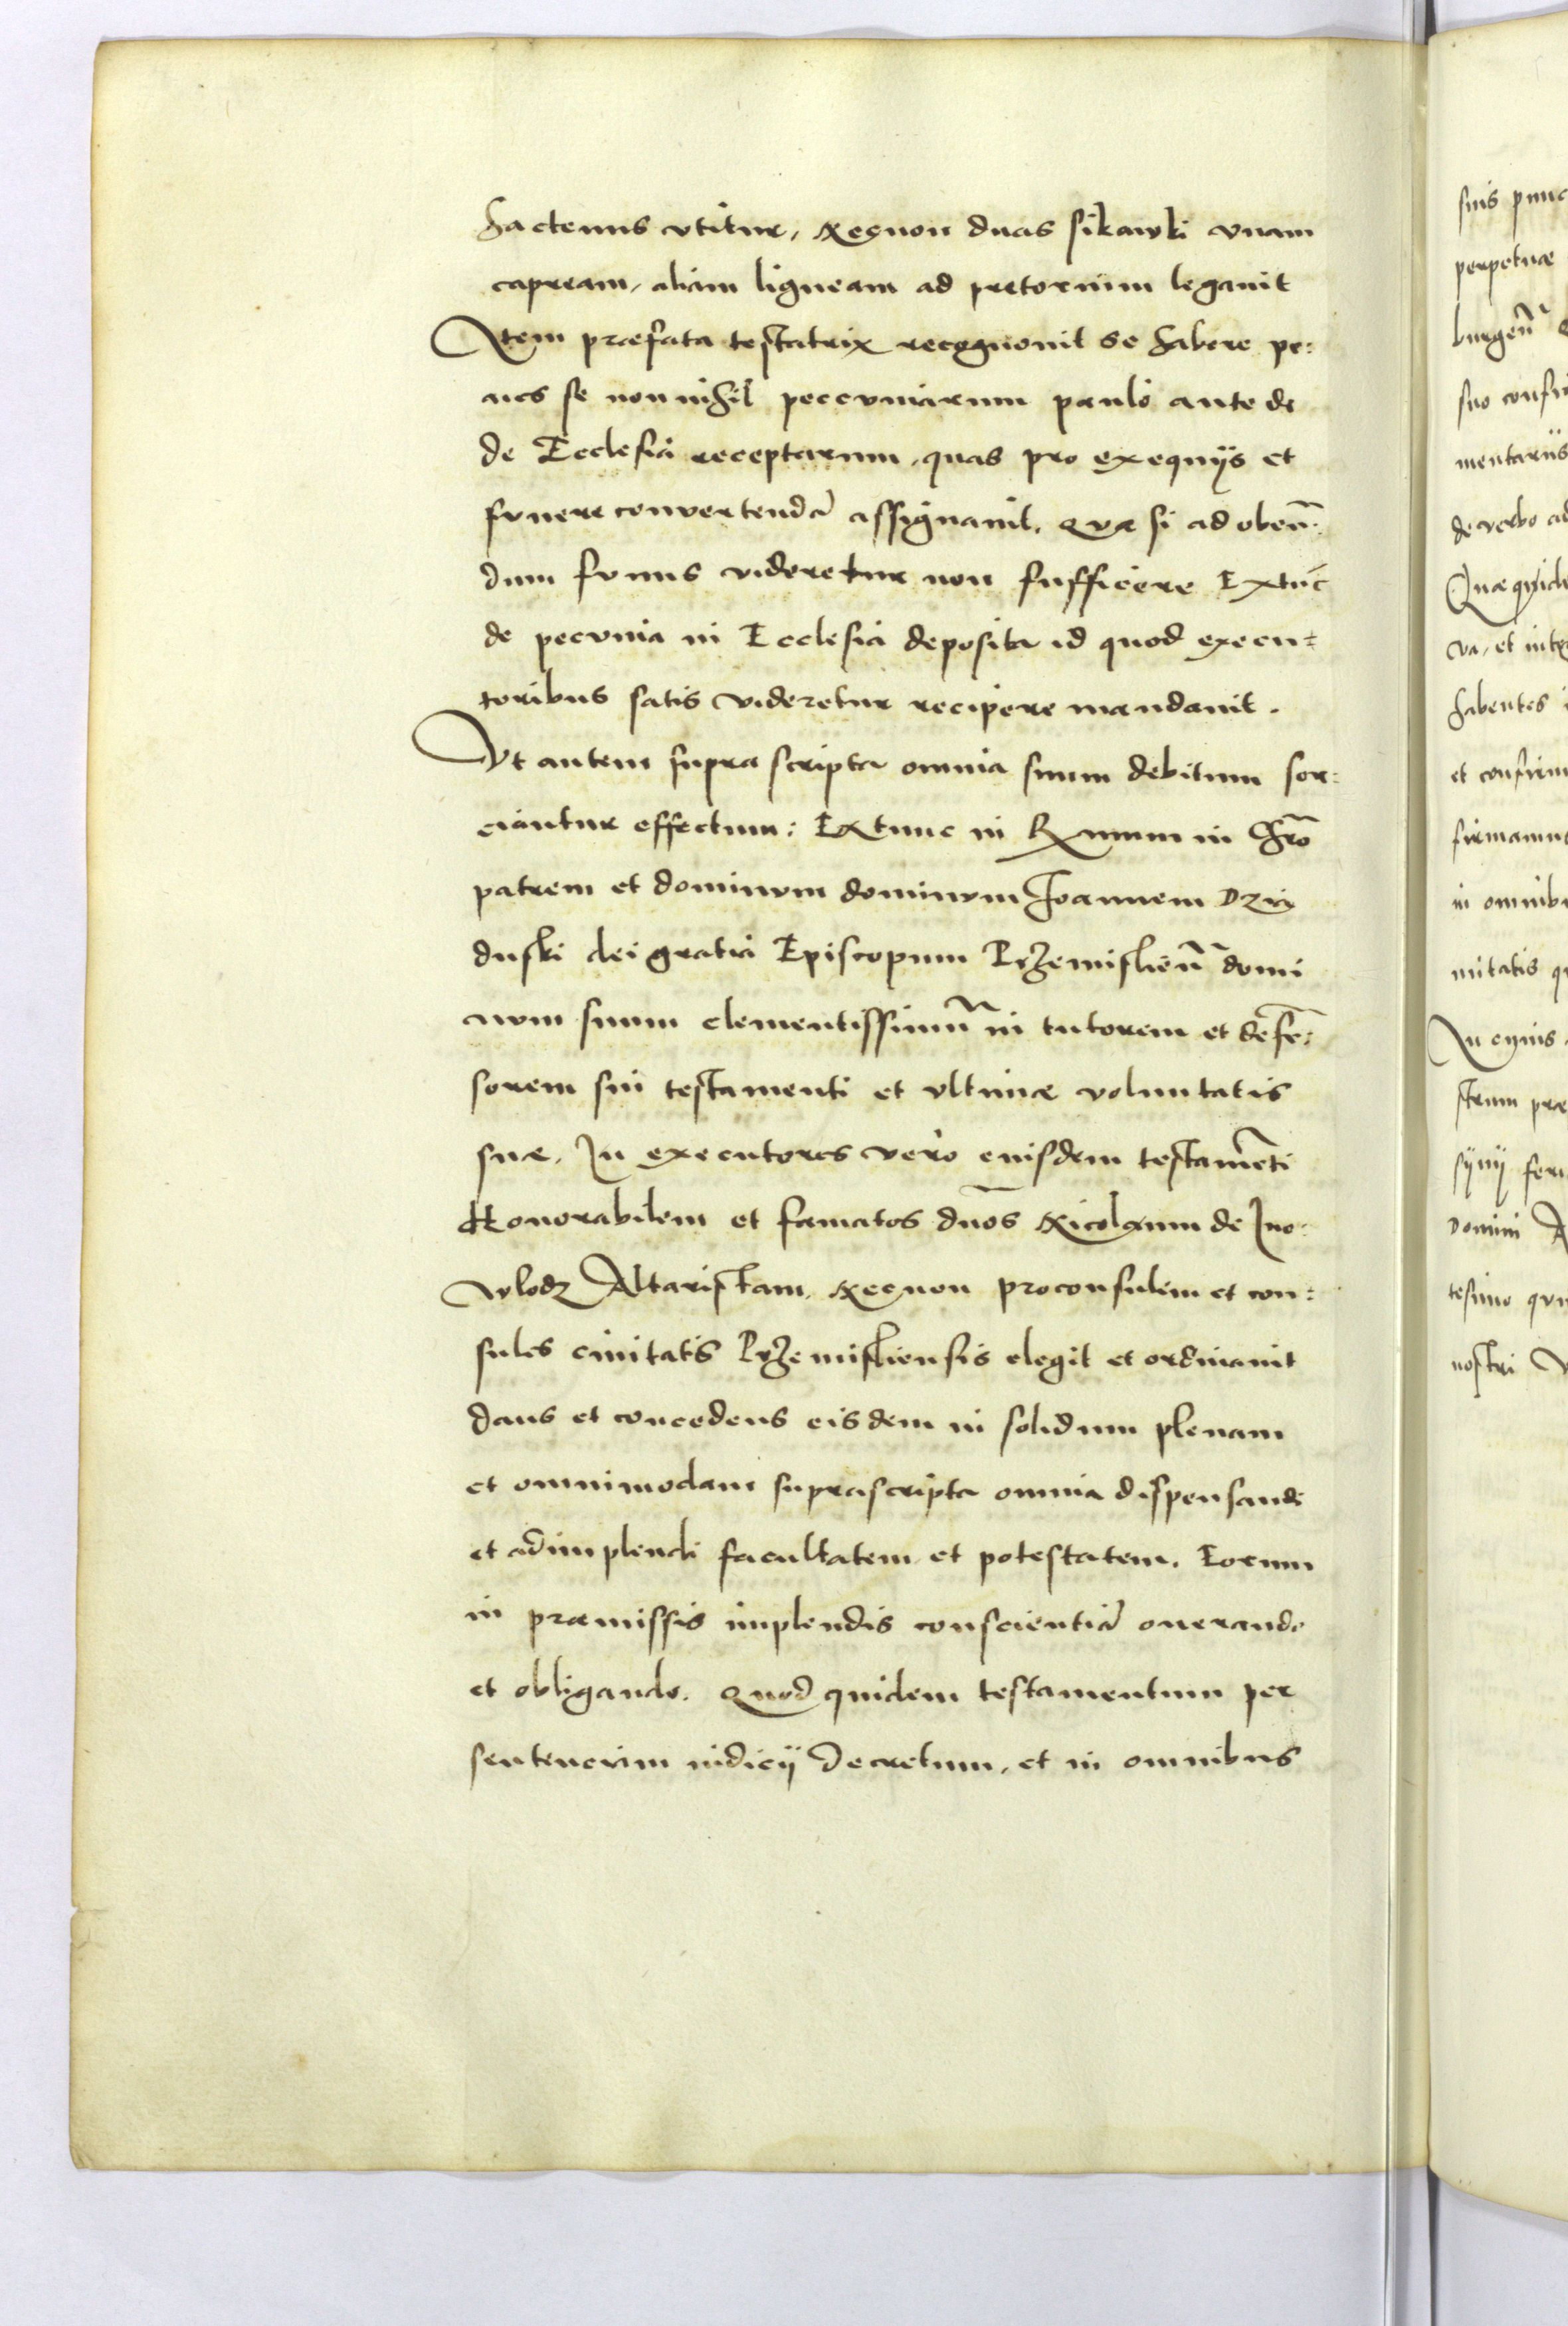 hactenus vtitur, Necnon duas sikawki vnam
cupream, aliam ligneam ad pretorium legauit
Item præfata testatrix recognouit se habere pe:
nes se nonnihil peccuniarum paulo ante de
de Ecclesia receptarum, quas pro exequijs et
funere convertenda assignauit. Quæ si ad obeu̅:
dum funus videretur non sufficere Extu̅c
de pecunia in Ecclesia deposita id quod execu:
toribus satis videretur recipere mandauit.
Vt autem supra scripta omnia suum debitum sor:
ciantur effectum: Extunc in Rmum in Chr̅o
patrem et dominum dominum Joannem Dzia
duski dei gratia Episcopum Przemislien̅ domi
num suum clementissimu̅ in tutorem et defe̅:
sorem sui testamenti et vltimæ voluntatis
suæ. In executores vero eiusdem testame̅ti
Honorabilem et famatos dn̅os Nicolaum de Ino:
wlodz Altaristam, Necnon proconsulem et con:
sules ciuitatis Przemisliensis elegit et ordinauit
dans et concedens eisdem in solidum plenam
et omnimodam suprascripta omnia dispensandi
et adimplendi facultatem et potestatem. Eorum
in præmissis implendis conscientia onerando
et obligando. Quod quidem testamentum per
sentenciam iudicij decretum, et in omnibus
suis punc
perpetuæ
burgen̅
suo confir
mentariis
de verbo ad
Quæ quide
va, et inte
habentes
et confirm
firmamus
in omnib
nitatis q
In cuius
strum præ
synij feri
Domini A
tesimo qu
nostri V